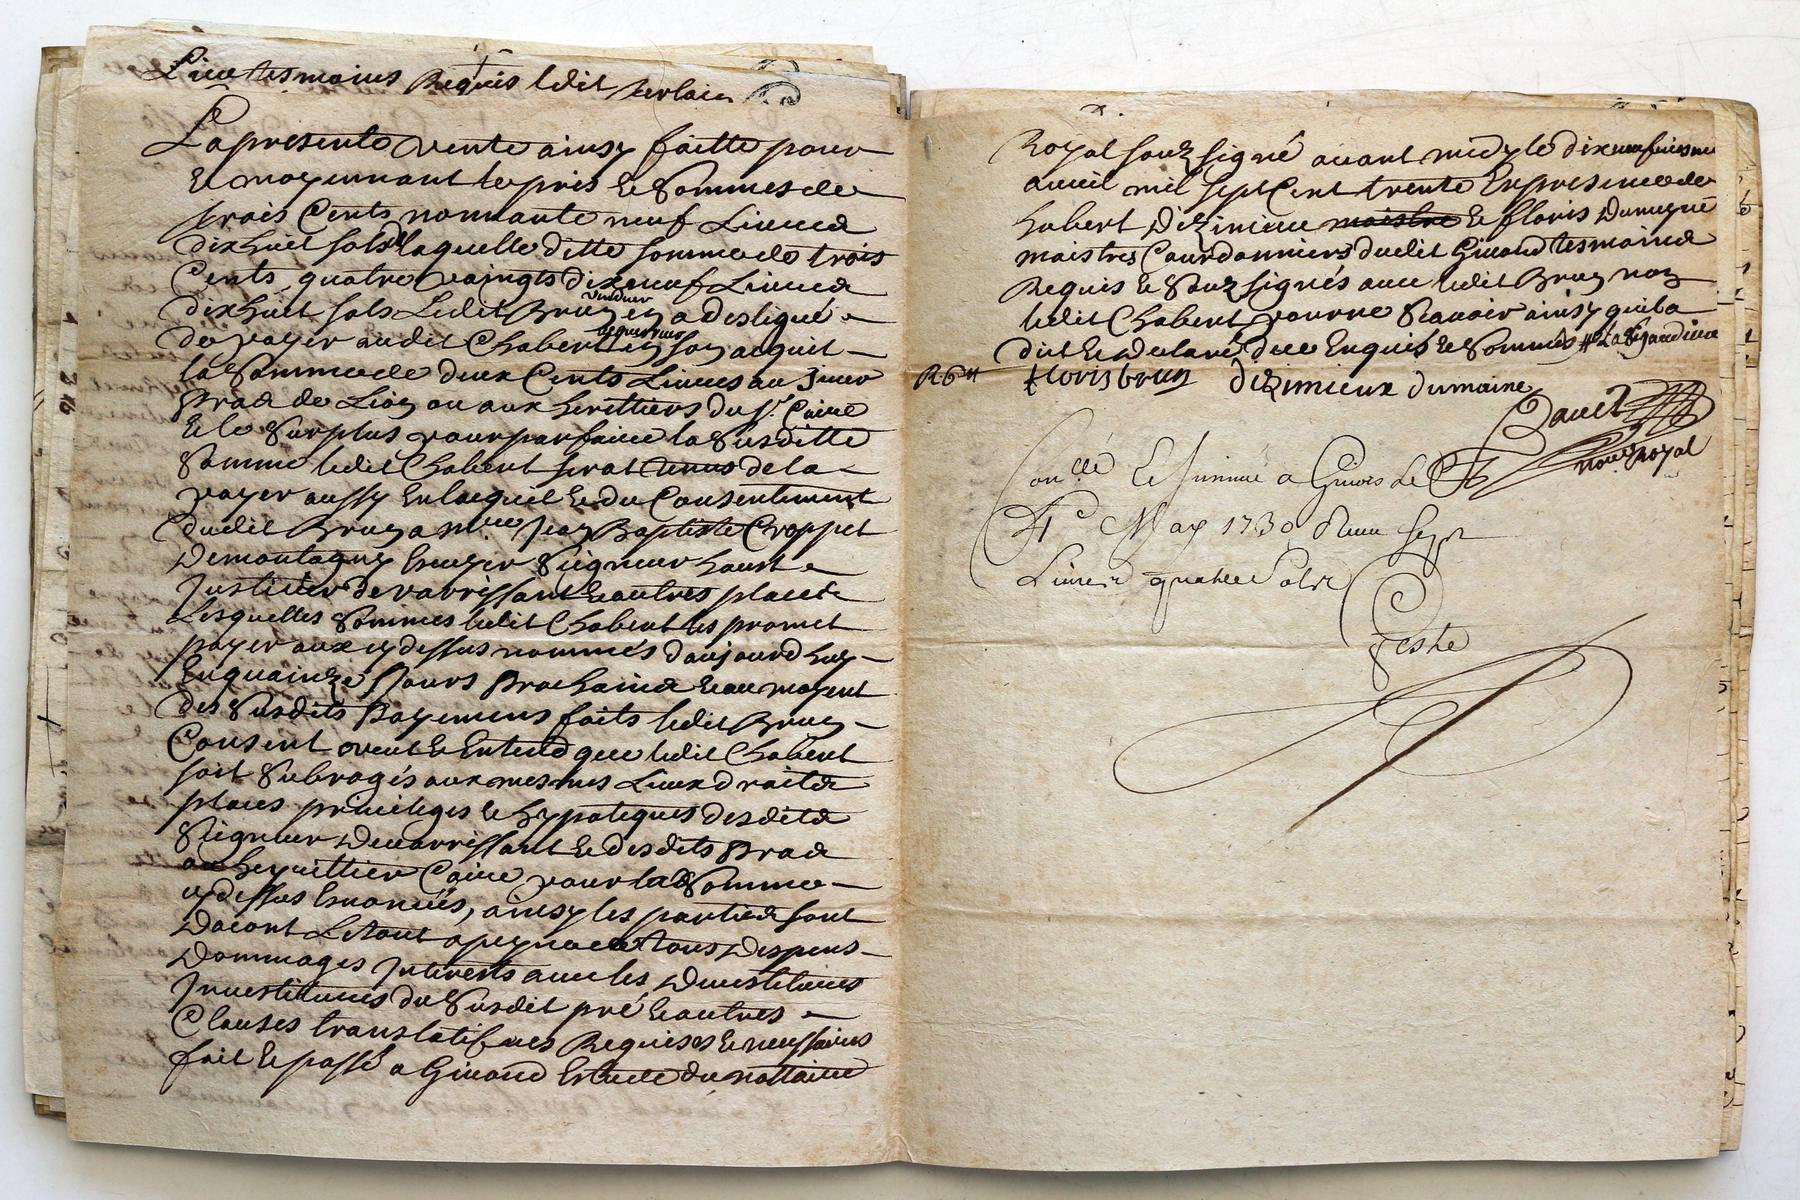 tesmoins Requis ledit
La presente vente ainsy faitte pour
Et moyennant le prix & Somme de
trois Cents nonnante neuf Livres
dixhuit sols laquelle ditte somme de trois
Cents quatre vaingts dix neuf Livres
dixhuit sols Ledit Brun vendeur en a desligué
de payer audit Chabert acquereur en son acquit
la Somme de deux Cents Livres au Sieur
Prad de Lion ou aux herittiers du Sr. Caire
Et le Surplus pour parfaire la Susditte
Somme ledit Chabert serat tenus de la
payer aussy En lacquit & du Consentement
dudit Brun a Mre Jean Baptiste Croppet
Demontagny Escuyer Seigneur haut
Justicier de varrissant & autres places
Lesquelles Sommes ledit Chabert les promet
payer aux cy dessus nommés d'aujourdhuy
En quainze Jours Prochains & au moyent
des Susdits Payemens faits ledit Brun
Consent veut & Entend que ledit Chabert
soit Subrogés aux mesmes Lieux droits
places privileges & hypoteques desdits
Seigneur De varrissant & desdits Prad
Caire pour la Somme
cy dessus Enoncés, ainsy les parties sont
Dacort Et tout a peyne de tous Despens
Dommages Interests avec les Devestitures
Investitures du Susdit pré & autres
Clauses translatifves Requises & necessaires
fait & passé a Givord Estude du nottaire
Royal souz signé avant midy le dix neufviesme
avril mil sept Cent trente En presence de
hubert Dizimieu maistre & floris Dumayne
maistres Courdonniers dudit Givord tesmoins
Requis & Souz signés avec ledit Brun non
ledit Chabert pour ne Scavoir ainsy quil a
dit & Declaré, duc Enquis & Sommés
floris brun dizimieux dumaine
nore Royal
Con.llé Et Jnsinué a Givors Le
4e May 1730 Receu Sept
Livres quatre Sols
geste